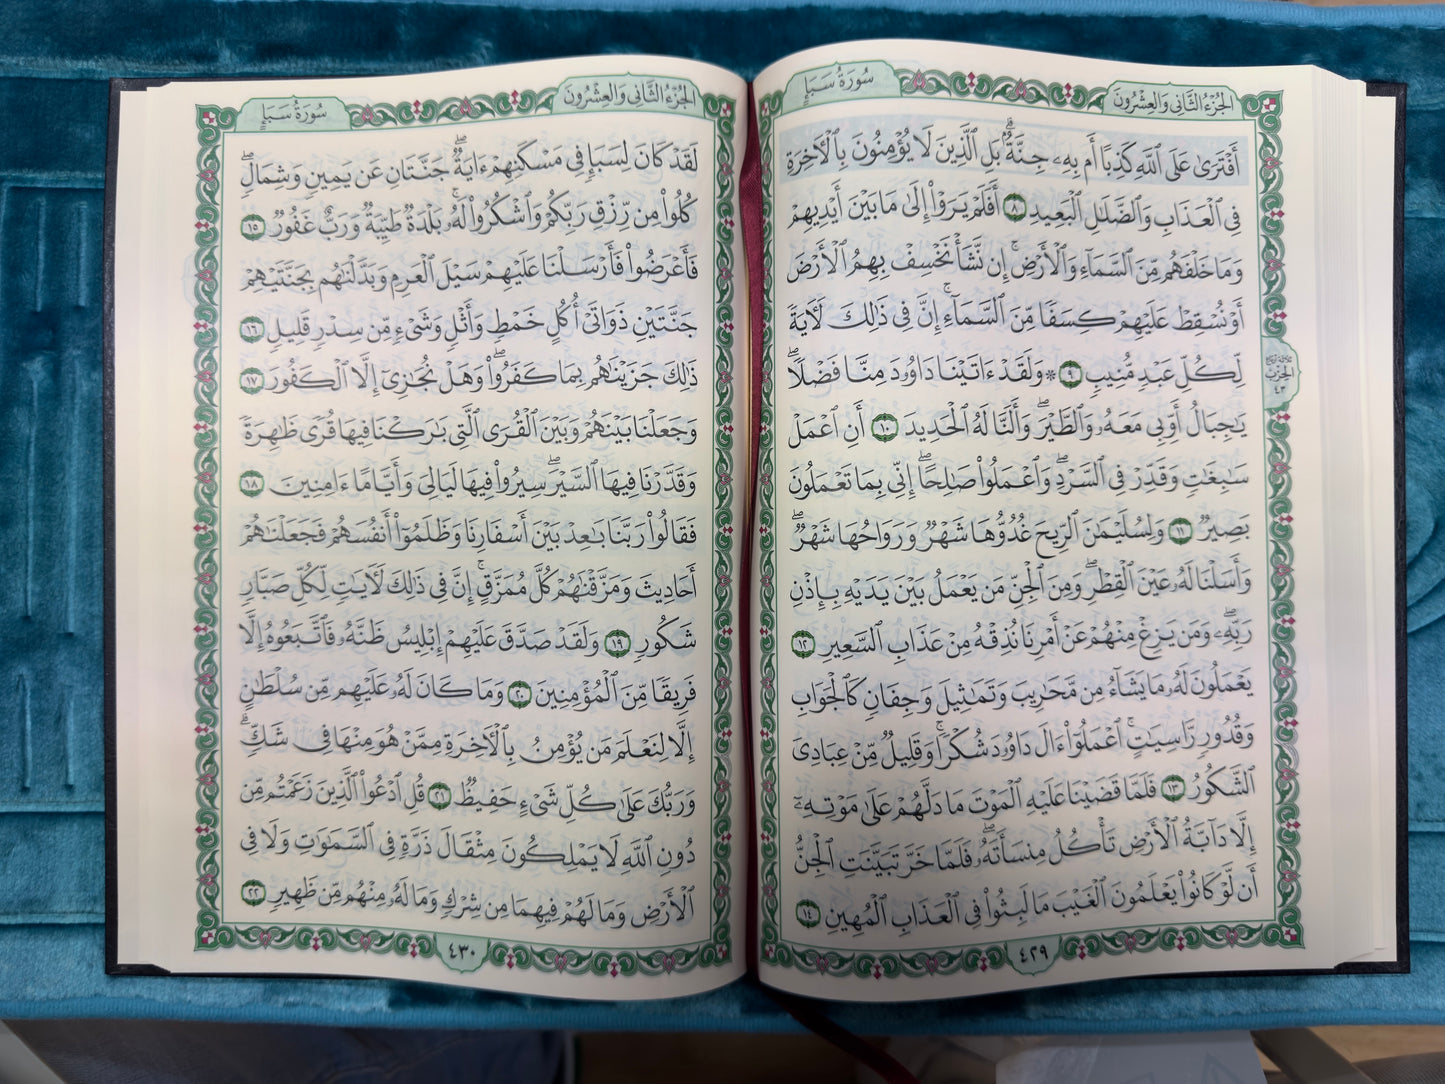 الجزء الثاني والعشرون
سورة سبإ
أَفْتَرَىٰ عَلَى ٱللَّهِ كَذِبًا أَم بِهِۦ جِنَّةٌۢ ۗ بَلِ ٱلَّذِينَ لَا يُؤْمِنُونَ بِٱلْأَخِرَةِ
فِى ٱلْعَذَابِ وَٱلضَّلَٰلِ ٱلْبَعِيدِ ٨ أَفَلَمْ يَرَوْا۟ إِلَىٰ مَا بَيْنَ أَيْدِيهِمْ
وَمَا خَلْفَهُم مِّنَ ٱلسَّمَآءِ وَٱلْأَرْضِ ۚ إِن نَّشَأْ نَخْسِفْ بِهِمُ ٱلْأَرْضَ
أَوْ نُسْقِطْ عَلَيْهِمْ كِسَفًا مِّنَ ٱلسَّمَآءِ ۚ إِنَّ فِى ذَٰلِكَ لَءَايَةً
لِّكُلِّ عَبْدٍ مُّنِيبٍ ٩ ۞ وَلَقَدْ ءَاتَيْنَا دَاوُۥدَ مِنَّا فَضْلًا ۖ
يَٰجِبَالُ أَوِّبِى مَعَهُۥ وَٱلطَّيْرَ ۖ وَأَلَنَّا لَهُ ٱلْحَدِيدَ ١٠ أَنِ ٱعْمَلْ
سَٰبِغَٰتٍ وَقَدِّرْ فِى ٱلسَّرْدِ ۖ وَٱعْمَلُوا۟ صَٰلِحًا ۖ إِنِّى بِمَا تَعْمَلُونَ
بَصِيرٌ ١١ وَلِسُلَيْمَٰنَ ٱلرِّيحَ غُدُوُّهَا شَهْرٌ وَرَوَاحُهَا شَهْرٌ ۖ
وَأَسَلْنَا لَهُۥ عَيْنَ ٱلْقِطْرِ ۖ وَمِنَ ٱلْجِنِّ مَن يَعْمَلُ بَيْنَ يَدَيْهِ بِإِذْنِ
رَبِّهِۦ ۖ وَمَن يَزِغْ مِنْهُمْ عَنْ أَمْرِنَا نُذِقْهُ مِنْ عَذَابِ ٱلسَّعِيرِ ١٢
يَعْمَلُونَ لَهُۥ مَا يَشَآءُ مِن مَّحَٰرِيبَ وَتَمَٰثِيلَ وَجِفَانٍ كَٱلْجَوَابِ
وَقُدُورٍ رَّاسِيَٰتٍ ۚ ٱعْمَلُوٓا۟ ءَالَ دَاوُۥدَ شُكْرًا ۚ وَقَلِيلٌ مِّنْ عِبَادِىَ
ٱلشَّكُورُ ١٣ فَلَمَّا قَضَيْنَا عَلَيْهِ ٱلْمَوْتَ مَا دَلَّهُمْ عَلَىٰ مَوْتِهِۦٓ
إِلَّا دَآبَّةُ ٱلْأَرْضِ تَأْكُلُ مِنسَأَتَهُۥ ۖ فَلَمَّا خَرَّ تَبَيَّنَتِ ٱلْجِنُّ
أَن لَّوْ كَانُوا۟ يَعْلَمُونَ ٱلْغَيْبَ مَا لَبِثُوا۟ فِى ٱلْعَذَابِ ٱلْمُهِينِ ١٤
ثلاثة أرباع
الحزب
٤٣
٤٢٩
الجزء الثاني والعشرون
سورة سبإ
لَقَدْ كَانَ لِسَبَإٍ فِى مَسْكَنِهِمْ ءَايَةٌ ۖ جَنَّتَانِ عَن يَمِينٍ وَشِمَالٍ ۖ
كُلُوا۟ مِن رِّزْقِ رَبِّكُمْ وَٱشْكُرُوا۟ لَهُۥ ۚ بَلْدَةٌ طَيِّبَةٌ وَرَبٌّ غَفُورٌ ١٥
فَأَعْرَضُوا۟ فَأَرْسَلْنَا عَلَيْهِمْ سَيْلَ ٱلْعَرِمِ وَبَدَّلْنَٰهُم بِجَنَّتَيْهِمْ
جَنَّتَيْنِ ذَوَاتَىْ أُكُلٍ خَمْطٍ وَأَثْلٍ وَشَىْءٍ مِّن سِدْرٍ قَلِيلٍ ١٦
ذَٰلِكَ جَزَيْنَٰهُم بِمَا كَفَرُوا۟ ۖ وَهَلْ نُجَٰزِىٓ إِلَّا ٱلْكَفُورَ ١٧
وَجَعَلْنَا بَيْنَهُمْ وَبَيْنَ ٱلْقُرَى ٱلَّتِى بَٰرَكْنَا فِيهَا قُرًى ظَٰهِرَةً
وَقَدَّرْنَا فِيهَا ٱلسَّيْرَ ۖ سِيرُوا۟ فِيهَا لَيَالِىَ وَأَيَّامًا ءَامِنِينَ ١٨
فَقَالُوا۟ رَبَّنَا بَٰعِدْ بَيْنَ أَسْفَارِنَا وَظَلَمُوٓا۟ أَنفُسَهُمْ فَجَعَلْنَٰهُمْ
أَحَادِيثَ وَمَزَّقْنَٰهُمْ كُلَّ مُمَزَّقٍ ۚ إِنَّ فِى ذَٰلِكَ لَءَايَٰتٍ لِّكُلِّ صَبَّارٍ
شَكُورٍ ١٩ وَلَقَدْ صَدَّقَ عَلَيْهِمْ إِبْلِيسُ ظَنَّهُۥ فَٱتَّبَعُوهُ إِلَّا
فَرِيقًا مِّنَ ٱلْمُؤْمِنِينَ ٢٠ وَمَا كَانَ لَهُۥ عَلَيْهِم مِّن سُلْطَٰنٍ
إِلَّا لِنَعْلَمَ مَن يُؤْمِنُ بِٱلْأَخِرَةِ مِمَّنْ هُوَ مِنْهَا فِى شَكٍّ ۗ
وَرَبُّكَ عَلَىٰ كُلِّ شَىْءٍ حَفِيظٌ ٢١ قُلِ ٱدْعُوا۟ ٱلَّذِينَ زَعَمْتُم مِّن
دُونِ ٱللَّهِ لَا يَمْلِكُونَ مِثْقَالَ ذَرَّةٍ فِى ٱلسَّمَٰوَٰتِ وَلَا فِى
ٱلْأَرْضِ وَمَا لَهُمْ فِيهِمَا مِن شِرْكٍ وَمَا لَهُۥ مِنْهُم مِّن ظَهِيرٍ ٢٢
٤٣٠